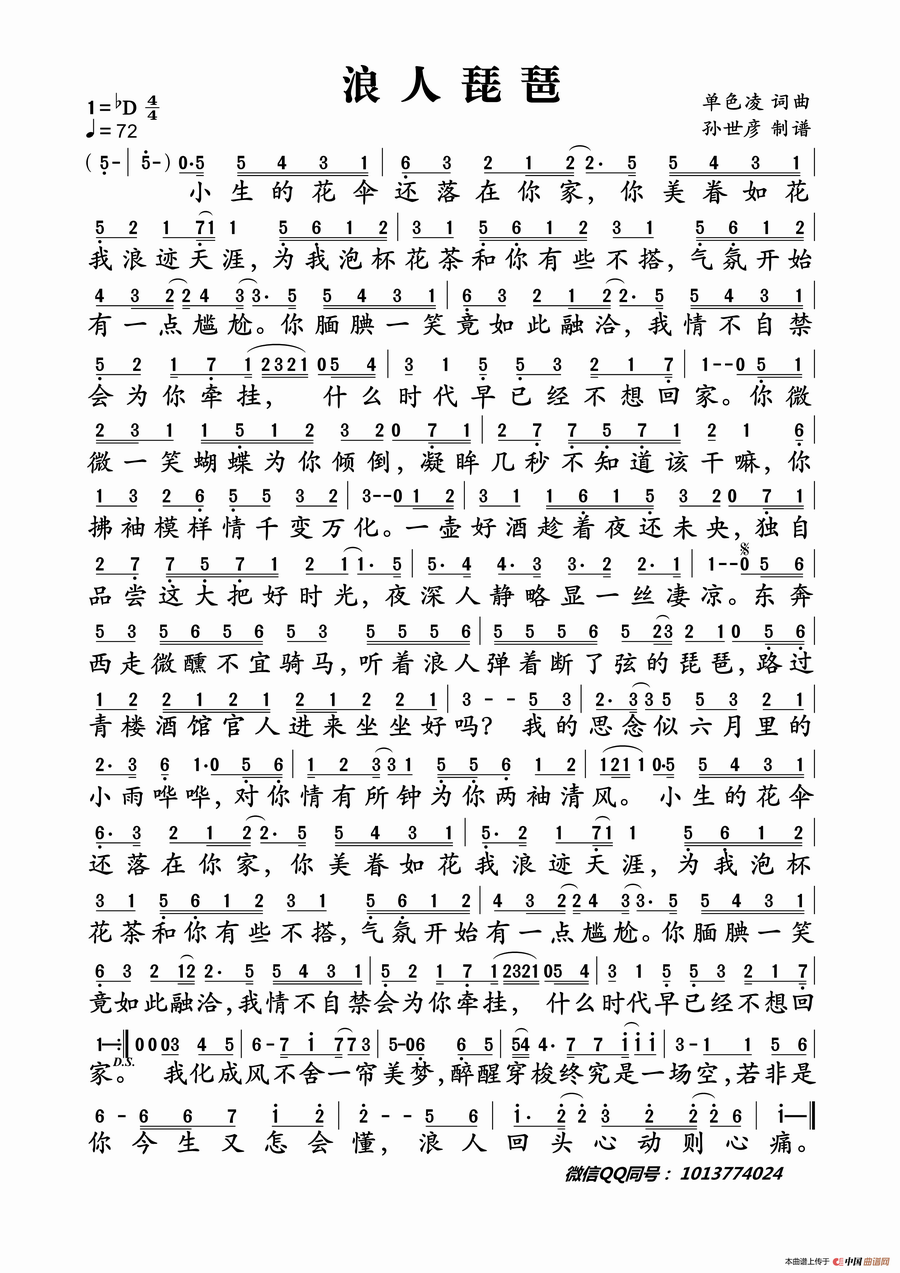 浪人琵琶
1=♭D 4/4
♩=72
单色凌 词曲
孙世彦 制谱
(5- | 5-) 0·5 5 4 3 1 | 6 3 2 1 2 2· 5 5 4 3 1 |
小生的花伞还落在你家，你美眷如花
5 2 1 7 1 1 5 6 1 2 | 3 1 5 6 1 2 3 1 5 6 1 2 |
我浪迹天涯，为我泡杯花茶和你有些不搭，气氛开始
4 3 2 2 4 3 3· 5 5 4 3 1 | 6 3 2 1 2 2· 5 5 4 3 1 |
有一点尴尬。你腼腆一笑竟如此融洽，我情不自禁
5 2 1 7 1 2 3 2 1 0 5 4 | 3 1 5 5 3 2 1 7 | 1--0 5 1 |
会为你牵挂， 什么时代早已经不想回家。你微
2 3 1 1 5 1 2 3 2 0 7 1 | 2 7 7 5 7 1 2 1 6 |
微一笑蝴蝶为你倾倒，凝眸几秒不知道该干嘛，你
1 3 2 6 5 5 3 2 | 3--0 1 2 | 3 1 1 6 1 5 3 2 0 7 1 |
拂袖模样情千变万化。一壶好酒趁着夜还未央，独自
2 7 7 5 7 1 2 1 1· 5 | 5· 4 4· 3 3· 2 2· 1 | 1--0 5 6 |
品尝这大把好时光，夜深人静略显一丝凄凉。东奔
5 3 5 6 5 6 5 3 5 5 5 6 | 5 5 5 6 5 2 3 2 1 0 5 6 |
西走微醺不宜骑马，听着浪人弹着断了弦的琵琶，路过
1 2 2 1 2 1 2 1 2 2 1 | 3 - - 5 3 | 2· 3 3 5 5 3 2 1 |
青楼酒馆官人进来坐坐好吗？ 我的思念似六月里的
2· 3 6 1·0 5 6 | 1 2 3 3 1 5 5 6 1 2 | 1 2 1 1 0·5 5 4 3 1 |
小雨哗哗，对你情有所钟为你两袖清风。 小生的花伞
6· 3 2 1 2 2· 5 5 4 3 1 | 5· 2 1 7 1 1 5 6 1 2 |
还落在你家，你美眷如花我浪迹天涯，为我泡杯
3 1 5 6 1 2 3 1 5 6 1 2 | 4 3 2 2 4 3 3· 5 5 4 3 1 |
花茶和你有些不搭，气氛开始有一点尴尬。你腼腆一笑
6 3 2 1 2 2· 5 5 4 3 1 | 5 2 1 7 1 2 3 2 1 0 5 4 | 3 1 5 5 3 2 1 7 |
竟如此融洽，我情不自禁会为你牵挂， 什么时代早已经不想回
1—:‖ 0 0 0 3 4 5 | 6 - 7 i 7 7 3 | 5-0 6 6 5 | 5 4 4· 7 7 i i i | 3- 1 1 5 6 |
D.S.
家。 我化成风不舍一帘美梦，醉醒穿梭终究是一场空，若非是
6 - 6 6 7 i 2 | 2 - - 5 6 | i· 2 2 3 2 2 2 6 | i—‖
你今生又怎会懂，浪人回头心动则心痛。
微信QQ同号： 1013774024
本曲谱上传于 中国曲谱网